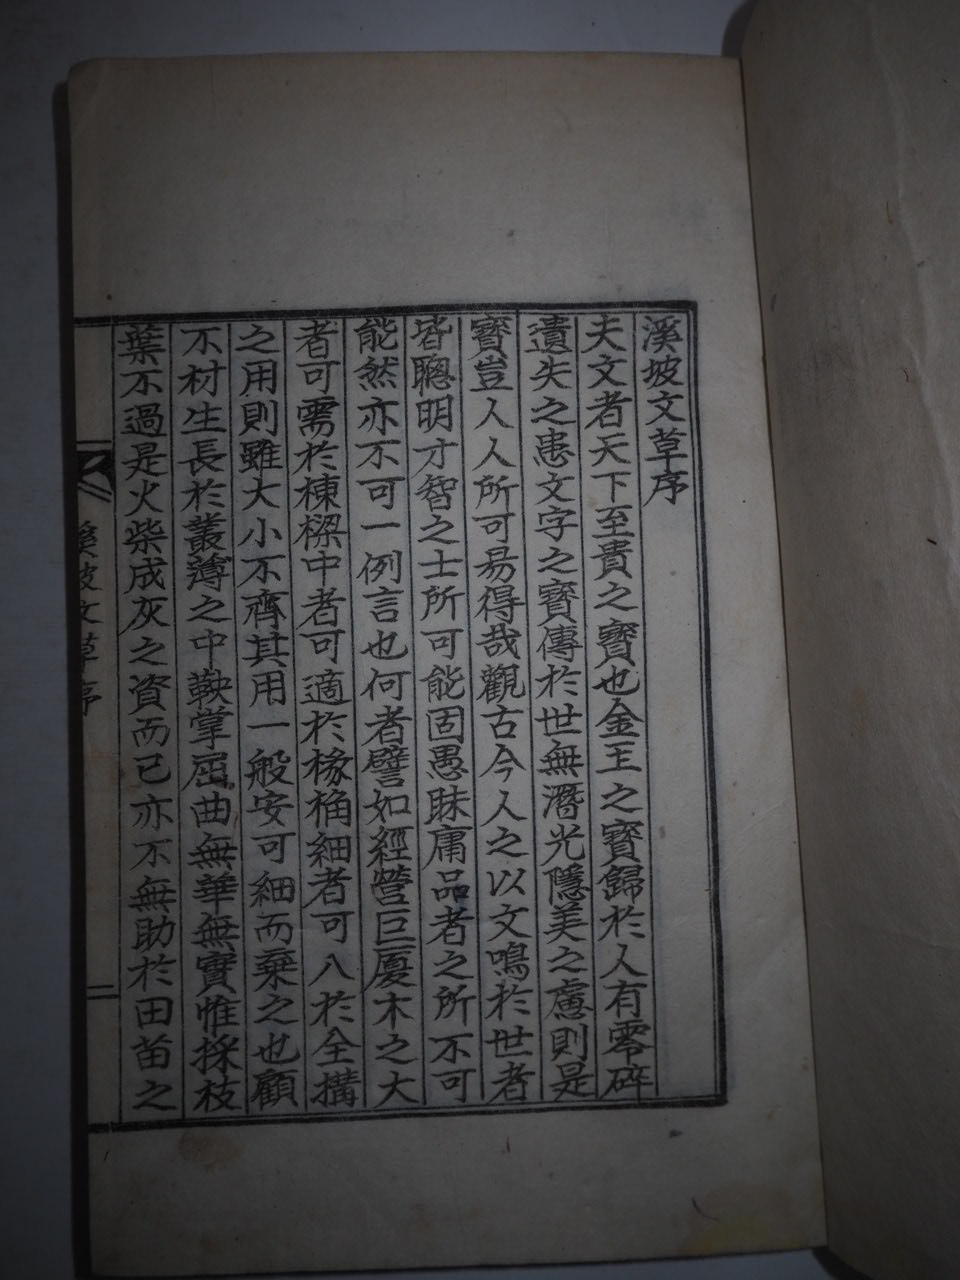 溪坡文草序
夫文者天下至貴之寶也金玉之寶歸於人有零碎
遺失之患文字之寶傳於世無潛光隱美之慮則是
寶豈人人所可易得哉觀古今人之以文鳴於世者
皆聰明才智之士所可能固愚眛庸品者之所不可
能然亦不可一例言也何者譬如經營巨厦木之大
者可需於棟樑中者可適於椽桷細者可八於全搆
之用則雖大小不齊其用一般安可細而棄之也顧
不材生長於叢薄之中鞅掌屈曲無華無實惟採枝
葉不過是火柴成灰之資而已亦不無助於田苗之
溪坡文草序